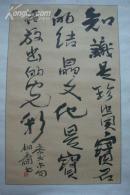 知识是珍贵宝石
的结晶文化是宝
石放出的光彩